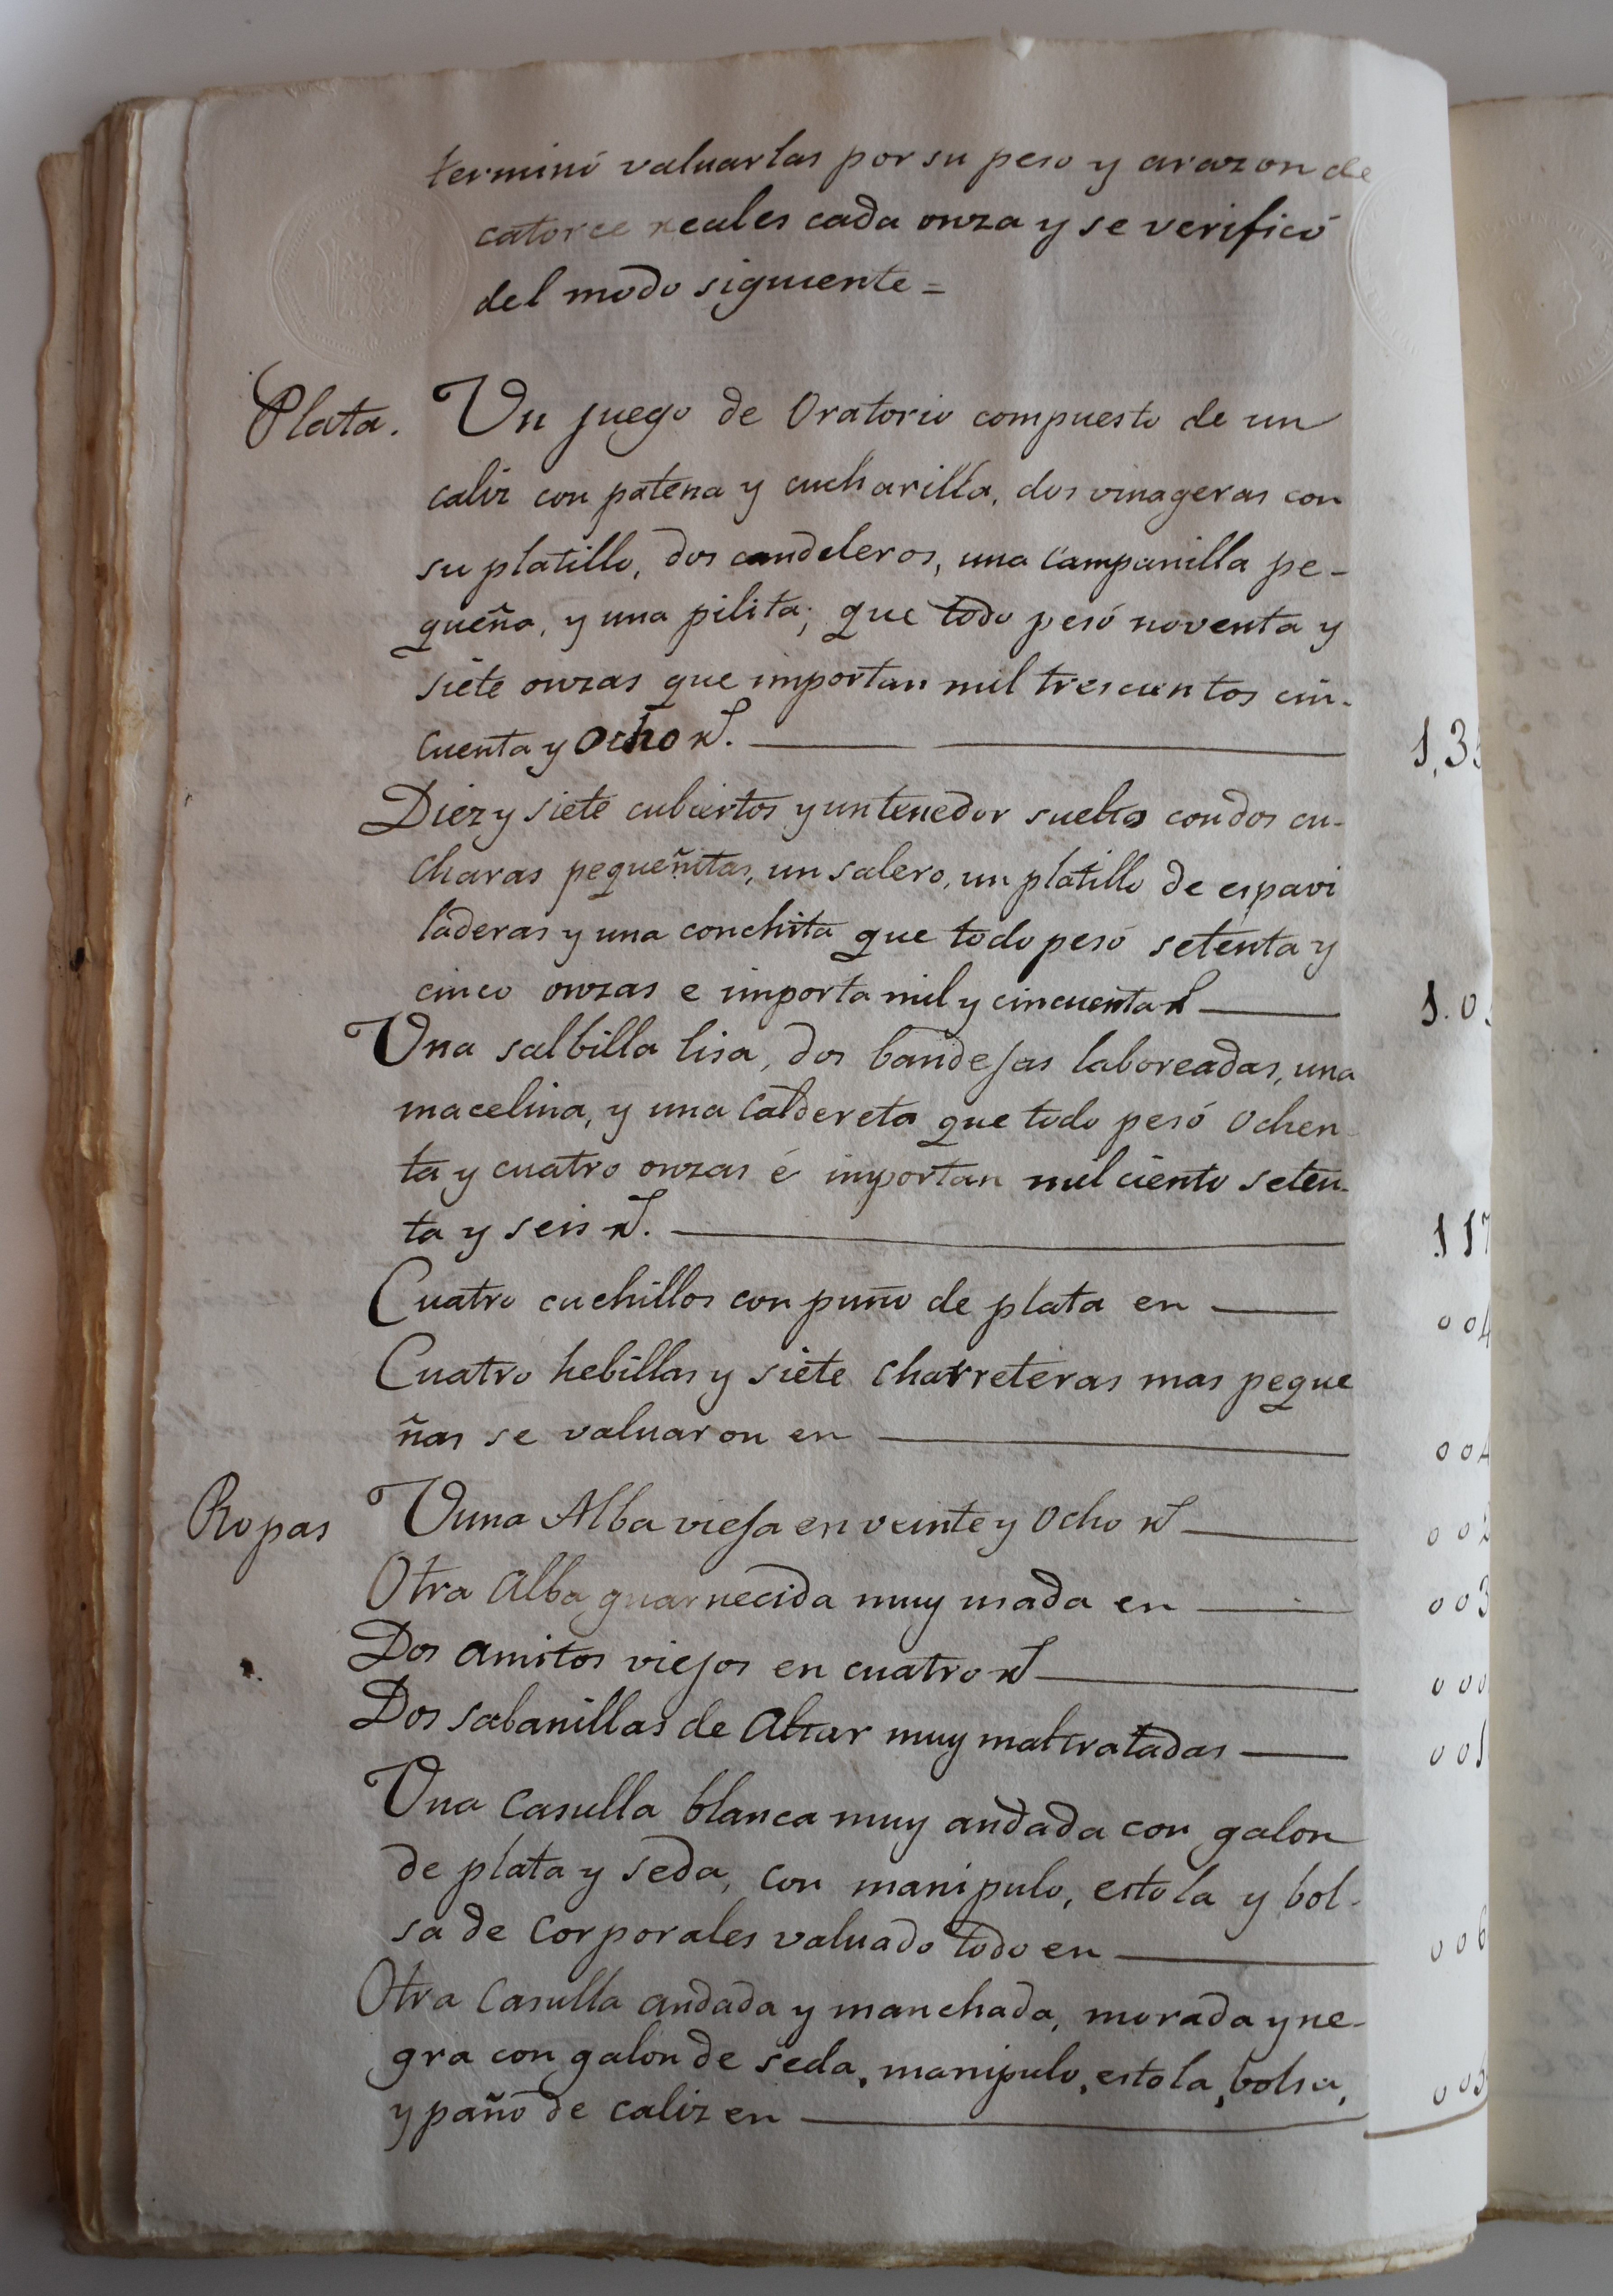 terminó valuarlas por su peso y arazon de
catorce reales cada onza y se verificó
del modo siguiente =
Plata. Un juego de Oratorio compuesto de un
caliz con patena y cucharilla, dos vinageras con
su platillo, dos candeleros, una Campanilla pe-
queña, y una pilita; que todo pesó noventa y
siete onzas que importan mil trescientos cin-
cuenta y Ocho rs.
Diez y siete cubiertos y un tenedor suelto con dos cu-
charas pequeñitas, un salero, un platillo de espavi
laderas y una conchita que todo pesó setenta y
cinco onzas e importa mil y cincuenta rs
Una salbilla lisa, dos bandejas laboreadas, una
macelina, y una Caldereta que todo pesó Ochen-
ta y cuatro onzas é importan mil ciento seten-
ta y seis rs.
Cuatro cuchillos con puño de plata en
Cuatro hebillas y siete charreteras mas peque
ñas se valuaron en
Ropas Vuna Alba vieja en veinte y Ocho rs
Otra Alba guarnecida muy usada en
Dos amitos viejos en cuatro rs
Dos sabanillas de Altar muy maltratadas
Una Casulla blanca muy andada con galon
de plata y seda, con manipulo, estola y bol-
sa de Corporales valuado todo en
Otra Casulla andada y manchada, morada y ne-
gra con galon de seda, manipulo, estola, bolsa,
y paño de caliz en